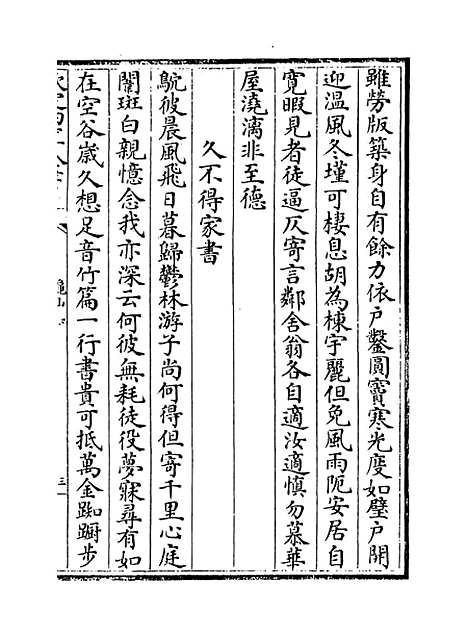 雖勞版築身自有餘力依戶鑿圓竇寒光度如璧戶開
迎溫風冬墐可棲息胡為棟宇麗但免風雨阨安居自
寛暇見者徒逼仄寄言鄰舍翁各自適汝適慎勿慕華
屋澆漓非至德
久不得家書
鴥彼晨風飛日暮歸鬱林游子尚何得但寄千里心庭
闈斑白親憶念我亦深云何彼無耗徒役夢寐尋有如
在空谷歳久想足音竹篇一行書貴可抵萬金踟蹰步
龜山
三